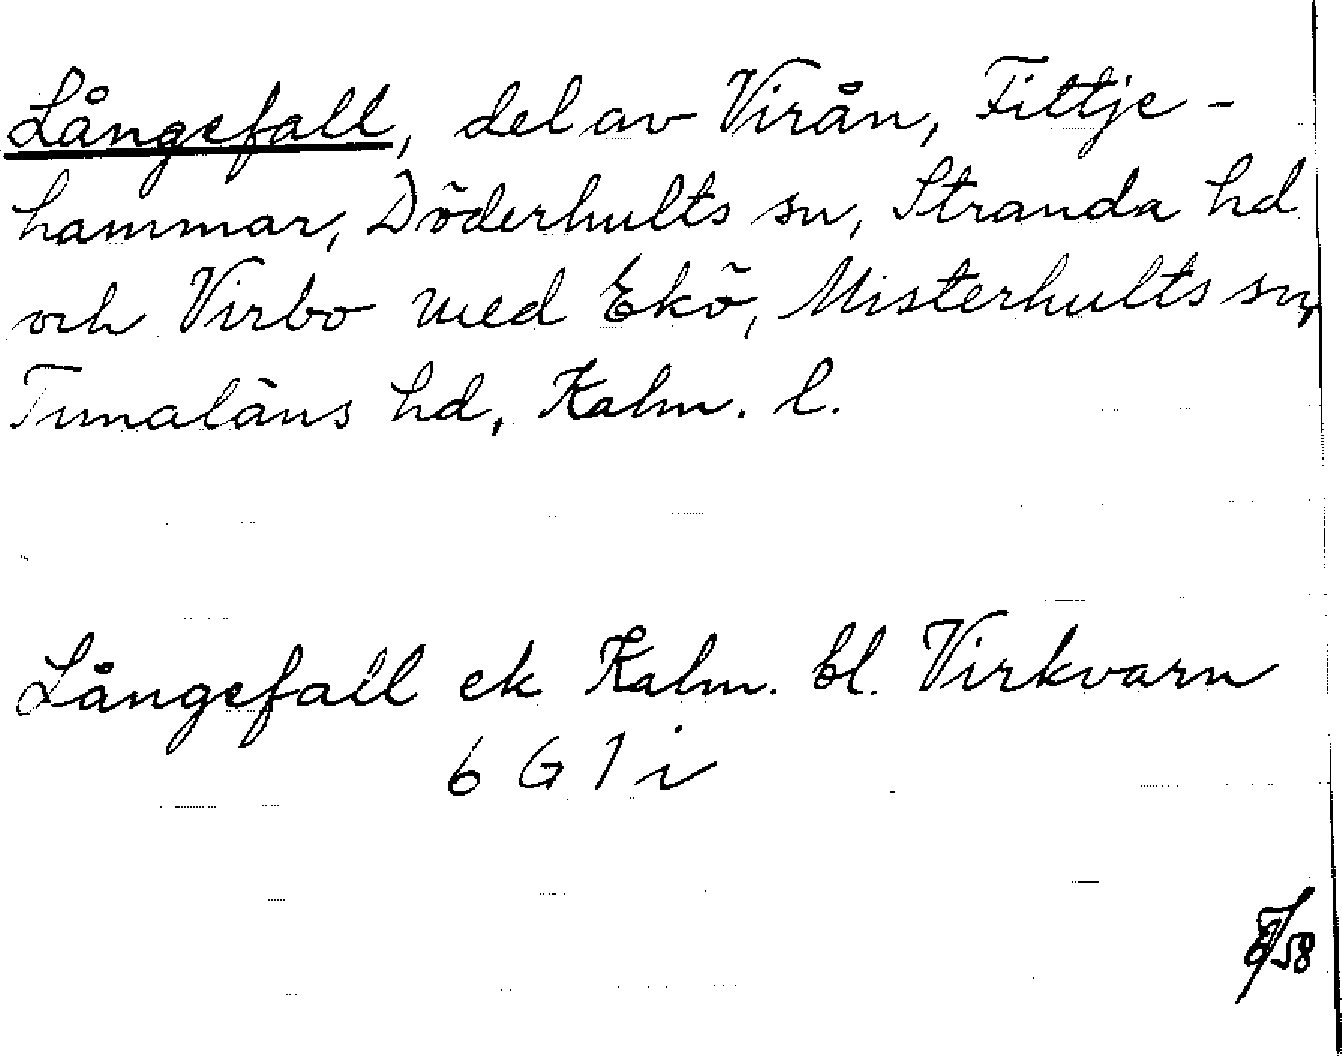 Långefall, del av Virån, Fittje-
hammar, Döderhults sn, Stranda hd
och Virbo med Ekö, Misterhults sn,
Tunaläns hd, Kalm. l.
Långefall ek Kalm. bl. Virkvarn
6 G 1 i
/58